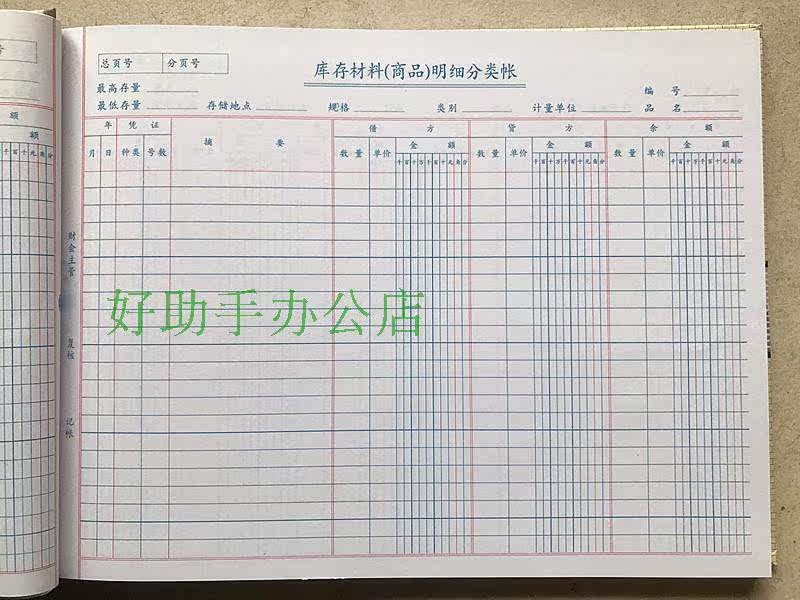 总页号 分页号
库存材料(商品)明细分类帐
最高存量 编 号
最低存量 存储地点 规格 类别 计量单位 品 名
年 凭 证 摘 要 借 方 贷 方 余 额
月 日 种类 号数 数 量 单价 金 额 数 量 单价 金 额 数 量 单价 金 额
千百十万千百十元角分 千百十万千百十元角分 千百十万千百十元角分
财会主管
复核
记帐
好助手办公店
号
额
额
千百十元角分